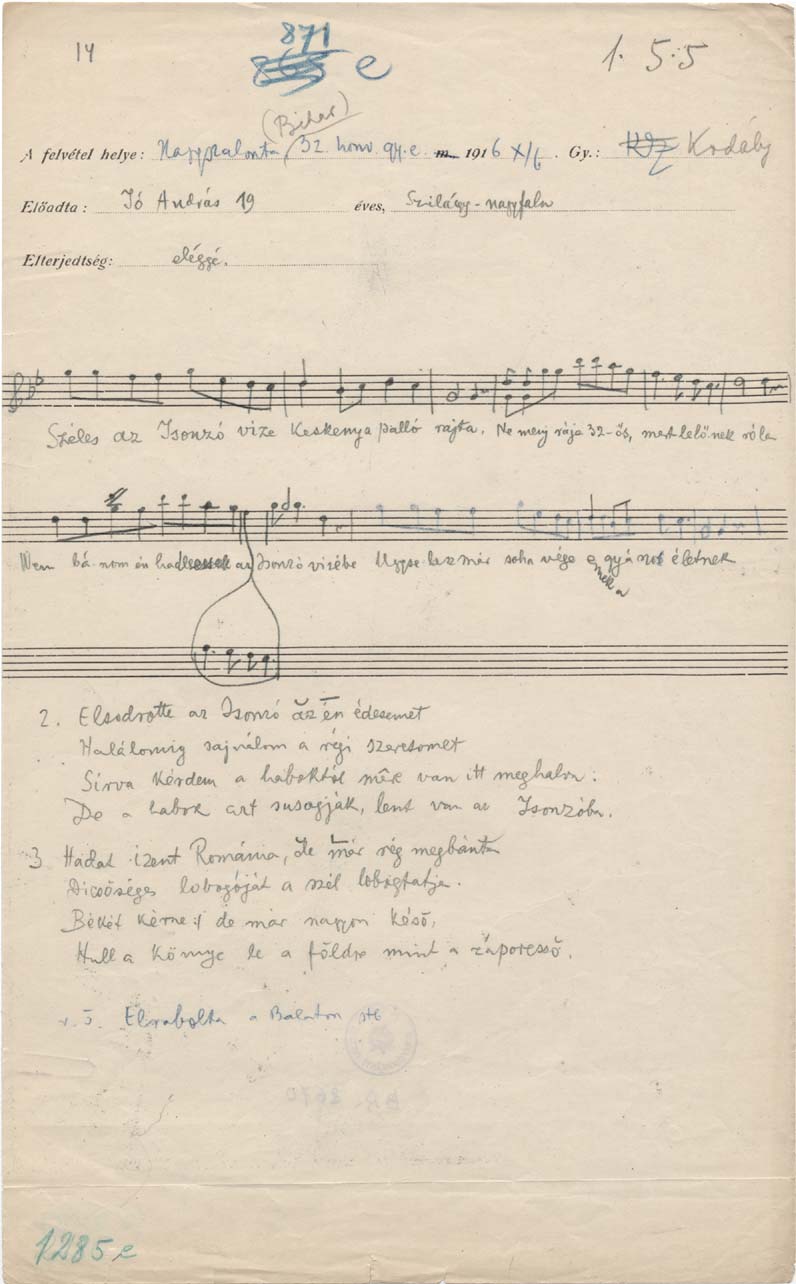 14
871
e
1. 5. 5
(Bihar)
A felvétel helye: Nagyszalonta, 32. honv. gy. e. m. 1916 X/6. Gy.: Kodály
Előadta: Jó András 19 éves, Szilágy-nagyfalu
Elterjedtség: eléggé.
Széles az Isonzó vize Keskeny a palló rajta. Ne menj rája 32-ős, mert lelőnek róla
Nem bánom én az Isonzó vizébe Ugyse lesz már soha vége életnek
ennek a
2. Elsodrotta az Isonzó az én édesemet
Halálomig sajnálom a régi szeretomet
Sirva kérdem a haboktól mére van itt meghalva:
De a habok azt susogják, lent van az Isonzóba.
3 Hadat izent Románia, de már rég megbánta
Dicsőséges lobogóját a szél lobogtatja.
Békét kérne :/ de már nagyon késő,
Hull a könnye le a földre mint a záporesső.
v. ö. Elrabolta a Balaton stb
1285 e